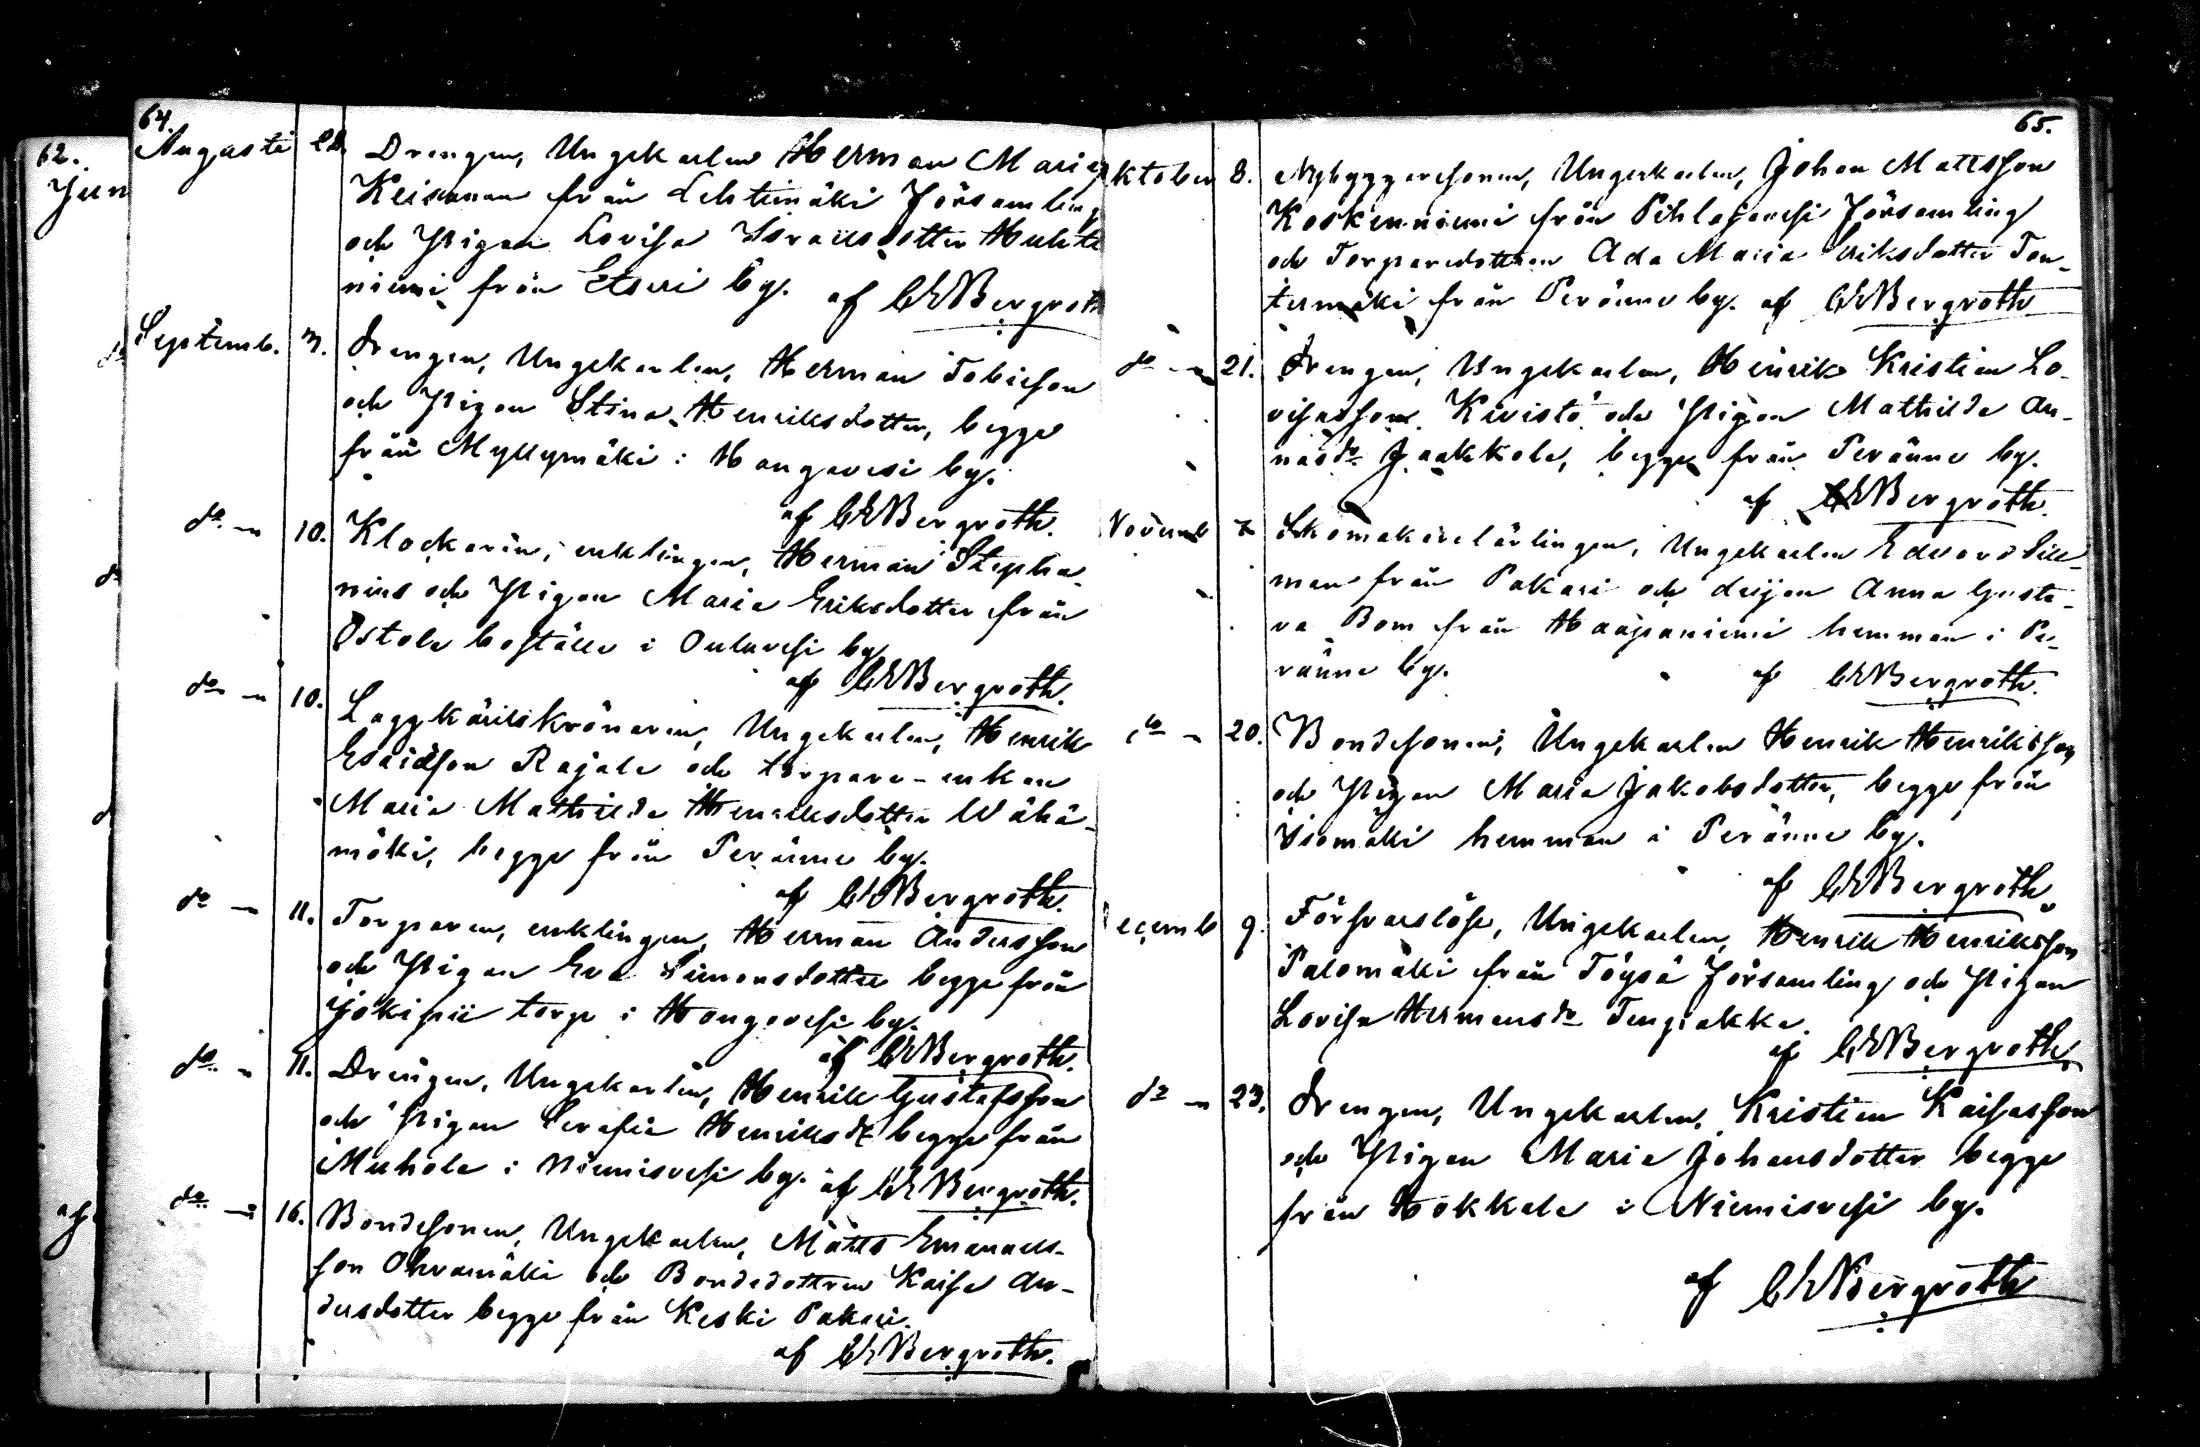 62.
Jun
64.
Augusti 28. Drengen, Ungekarlen Herman Marie
Keisanen från Lehtimäki Församling
och Pigan Lovisa Israelsdotter Huhta
niemi från Etseri by. af CEBergroth
Septemb. 3. Drengen, Ungekarlen, Herman Tobiesson
och Pigan Stina Henriksdotter, begge
från Myllymäki i Hangavesi by.
af CEBergroth.
do 10. Klockaren, enklingen, Herman Stepha-
nius och Pigan Maria Eriksdotter från
Ostola boställe i Ouluvesi by
af CEBergroth.
do 10. Laggkärilskrönaren, Ungekarlen, Henrik
Esaiasson Rajala och torpare-enkan
Maria Mathilda Henriksdotter Wähä-
mäki, begge från Peränne by.
af CEBergroth.
do 11. Torparen, enklingen, Herman Andersson
och Pigan Eva Simonsdotter begge från
Jokipii torp i Hangavesi by.
af CEBergroth.
do 11. Drengen, Ungekarlen, Henrik Gustafsson
och Pigan Serafia Henriksdr begge från
Muhola i Niemisvesi by. af CEBergroth.
do 16. Bondesonen, Ungekarlen, Matts Emanuels-
son Ohramäki och Bondedottren Kaisa An-
dersdotter begge från Keski Pakari.
af CEBergroth.
65.
ktober 8. Nybyggaresonen, Ungekarlen, Johan Mattsson
Koskenniemi från Pihlajavesi Församling
och Torparedottren Ada Maria Eriksdotter Ton-
termäki från Peränne by. af CEBergroth
do 21. Drengen, Ungekarlen, Henrik Kristian Lo-
visasson Kivistö och Pigan Mathilda An-
nasdr Jaakkola, begge från Peränne by.
af CEBergroth.
Novemb 7 Skomakarelärlingen, Ungekarlen Edvard Sill-
man från Pakari och Pigan Anna Gusta-
va Bom från Haapaniemi hemman i Pe-
ränne by. af CEBergroth.
do 20. Bondesonen, Ungekarlen Henrik Henriksson
och Pigan Maria Jakobsdotter, begge från
Visomäki hemman i Peränne by.
af CEBergroth.
ecemb 9. Försvarslöse, Ungekarlen, Henrik Henriksson
Palomäki från Töysä Församling och Pigan
Lovisa Hermansdr
af CEBergroth
do 23. Drengen, Ungekarlen, Kristian Kaisasson
och Pigan Maria Johansdotter begge
från Hokkala i Niemisvesi by.
af CEBergroth